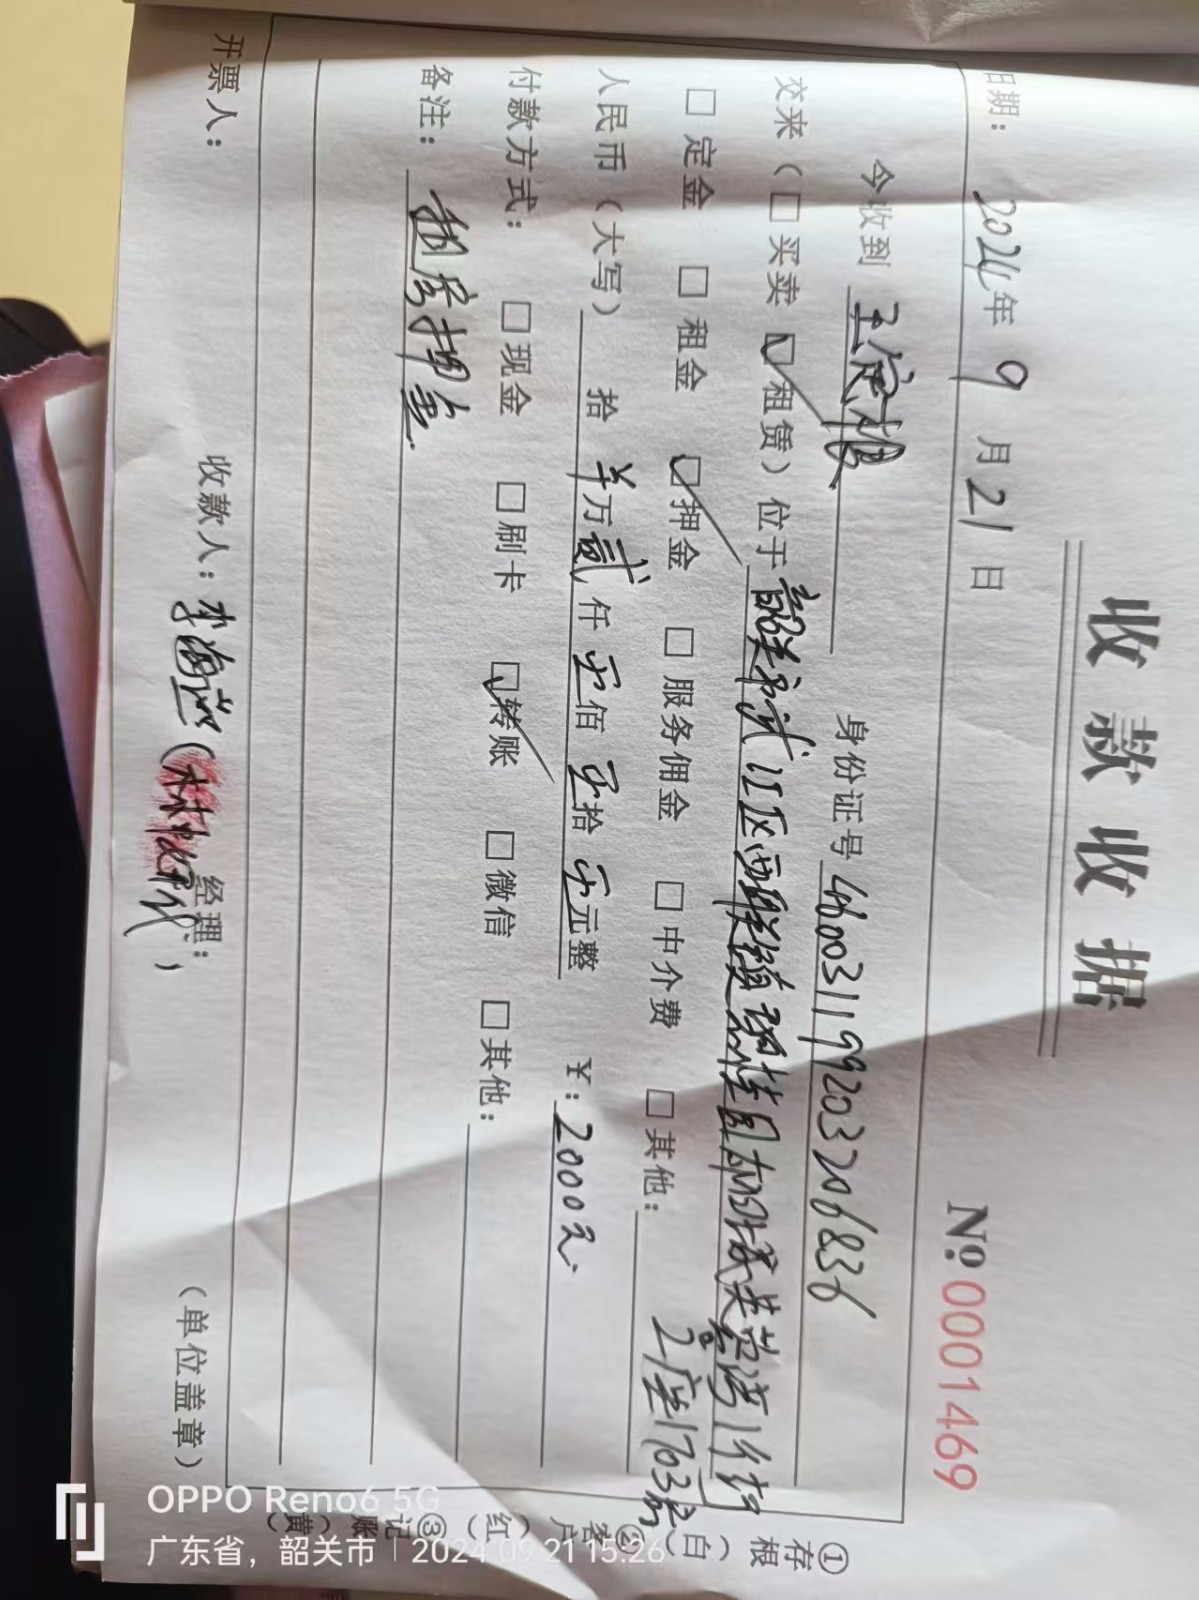 收款收据
№.0001469
日期：2024年9月21日
今收到 王定根 身份证号460031199203206836
交来（□买卖 ☑租赁）位于韶关市武江区西联镇
2座1703房
□定金 □租金 ☑押金 □服务佣金 □中介费 □其他：
人民币（大写） 拾 羊万贰仟零佰零拾零元整 ￥：2000元.
付款方式：□现金 □刷卡 ☑转账 □微信 □其他：
备注：租房押金.
开票人： 收款人：李海兰（林 代） 经理： （单位盖章）
①存根（白）②客户（红）③记账（黄）
OPPO Reno6 5G
广东省，韶关市 | 2024.09.21 15:26